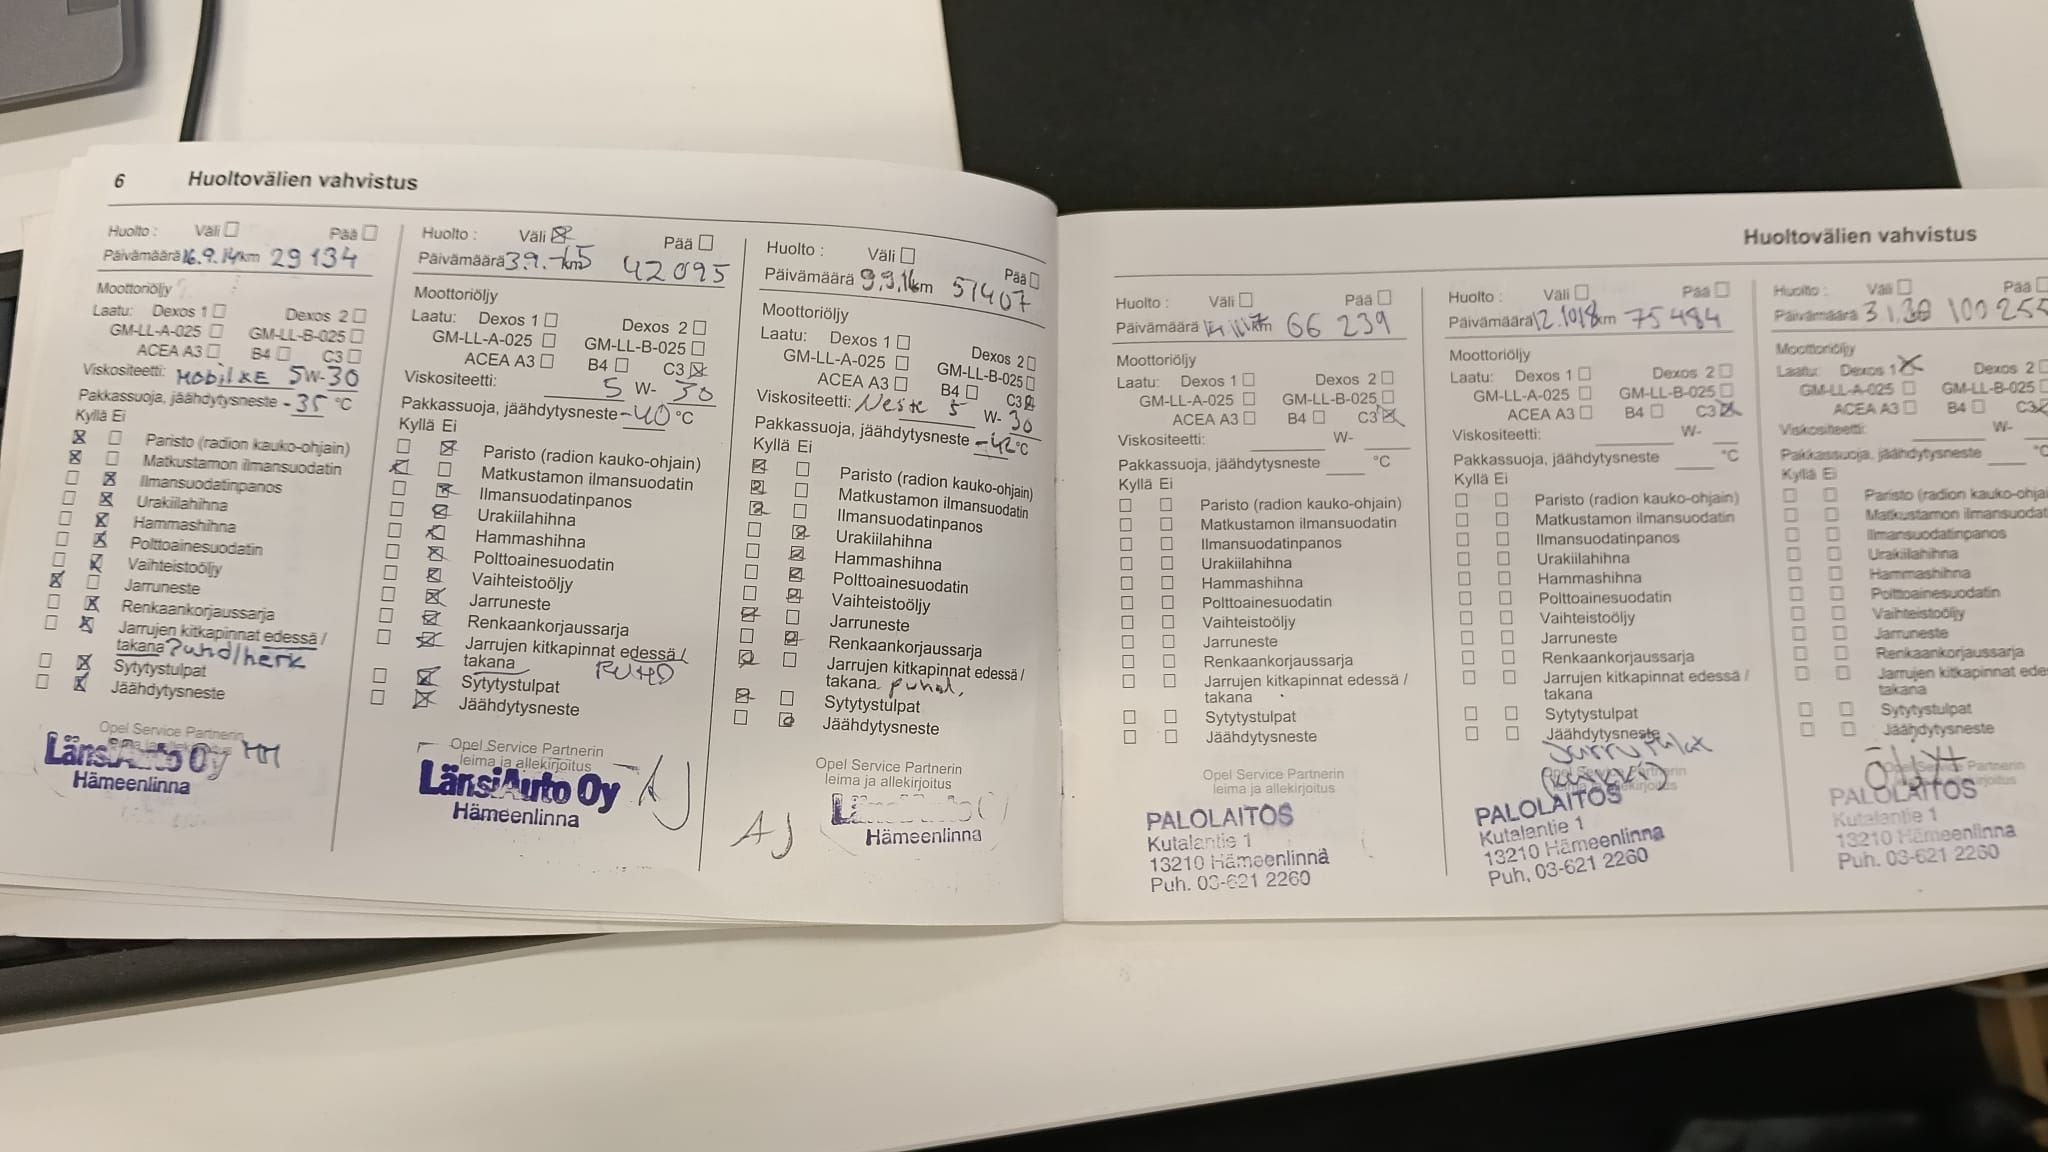 6 Huoltovälien vahvistus
Huolto : Väli Pää
Päivämäärä 16.9.14 km 29 134
Moottoriöljy
Laatu: Dexos 1 Dexos 2
GM-LL-A-025 GM-LL-B-025
ACEA A3 B4 C3
Viskositeetti: 5 W- 30
Pakkassuoja, jäähdytysneste -35 °C
Kyllä Ei
Paristo (radion kauko-ohjain)
Matkustamon ilmansuodatin
Ilmansuodatinpanos
Urakiilahihna
Hammashihna
Polttoainesuodatin
Vaihteistoöljy
Jarruneste
Renkaankorjaussarja
Jarrujen kitkapinnat edessä /
takana
Sytytystulpat
Jäähdytysneste
Opel Service Partnerin
leima ja allekirjoitus
LänsiAuto Oy
Hämeenlinna
Huolto : Väli Pää
Päivämäärä 3.9.-15 km 42095
Moottoriöljy
Laatu: Dexos 1 Dexos 2
GM-LL-A-025 GM-LL-B-025
ACEA A3 B4 C3
Viskositeetti: 5 W- 30
Pakkassuoja, jäähdytysneste -40 °C
Kyllä Ei
Paristo (radion kauko-ohjain)
Matkustamon ilmansuodatin
Ilmansuodatinpanos
Urakiilahihna
Hammashihna
Polttoainesuodatin
Vaihteistoöljy
Jarruneste
Renkaankorjaussarja
Jarrujen kitkapinnat edessä /
takana PUHD
Sytytystulpat
Jäähdytysneste
Opel Service Partnerin
leima ja allekirjoitus
LänsiAuto Oy AJ
Hämeenlinna
Huolto : Väli Pää
Päivämäärä 9.9.16 km 57407
Moottoriöljy
Laatu: Dexos 1 Dexos 2
GM-LL-A-025 GM-LL-B-025
ACEA A3 B4 C3
Viskositeetti: Neste 5 W- 30
Pakkassuoja, jäähdytysneste -42 °C
Kyllä Ei
Paristo (radion kauko-ohjain)
Matkustamon ilmansuodatin
Ilmansuodatinpanos
Urakiilahihna
Hammashihna
Polttoainesuodatin
Vaihteistoöljy
Jarruneste
Renkaankorjaussarja
Jarrujen kitkapinnat edessä /
takana puhd.
Sytytystulpat
Jäähdytysneste
Opel Service Partnerin
leima ja allekirjoitus
AJ
Hämeenlinna
Huoltovälien vahvistus
Huolto : Väli Pää
Päivämäärä km 66 239
Moottoriöljy
Laatu: Dexos 1 Dexos 2
GM-LL-A-025 GM-LL-B-025
ACEA A3 B4 C3
Viskositeetti: W-
Pakkassuoja, jäähdytysneste °C
Kyllä Ei
Paristo (radion kauko-ohjain)
Matkustamon ilmansuodatin
Ilmansuodatinpanos
Urakiilahihna
Hammashihna
Polttoainesuodatin
Vaihteistoöljy
Jarruneste
Renkaankorjaussarja
Jarrujen kitkapinnat edessä /
takana
Sytytystulpat
Jäähdytysneste
Opel Service Partnerin
leima ja allekirjoitus
PALOLAITOS
Kutalantie 1
13210 Hämeenlinna
Puh. 03-621 2260
Huolto : Väli Pää
Päivämäärä 12.1018 km 75484
Moottoriöljy
Laatu: Dexos 1 Dexos 2
GM-LL-A-025 GM-LL-B-025
ACEA A3 B4 C3
Viskositeetti: W-
Pakkassuoja, jäähdytysneste °C
Kyllä Ei
Paristo (radion kauko-ohjain)
Matkustamon ilmansuodatin
Ilmansuodatinpanos
Urakiilahihna
Hammashihna
Polttoainesuodatin
Vaihteistoöljy
Jarruneste
Renkaankorjaussarja
Jarrujen kitkapinnat edessä /
takana
Sytytystulpat
Jäähdytysneste
PALOLAITOS
Kutalantie 1
13210 Hämeenlinna
Puh. 03-621 2260
Huolto : Väli Pää
Päivämäärä 100 255
Moottoriöljy
Laatu: Dexos 1 Dexos 2
GM-LL-A-025 GM-LL-B-025
ACEA A3 B4 C3
Viskositeetti: W-
Pakkassuoja, jäähdytysneste °C
Kyllä Ei
Paristo (radion kauko-ohjai
Matkustamon ilmansuodat
Ilmansuodatinpanos
Urakiilahihna
Hammashihna
Polttoainesuodatin
Vaihteistoöljy
Jarruneste
Renkaankorjaussarja
Jarrujen kitkapinnat ede
takana
Sytytystulpat
Jäähdytysneste
PALOLAITOS
Kutalantie 1
13210 Hämeenlinna
Puh. 03-621 2260